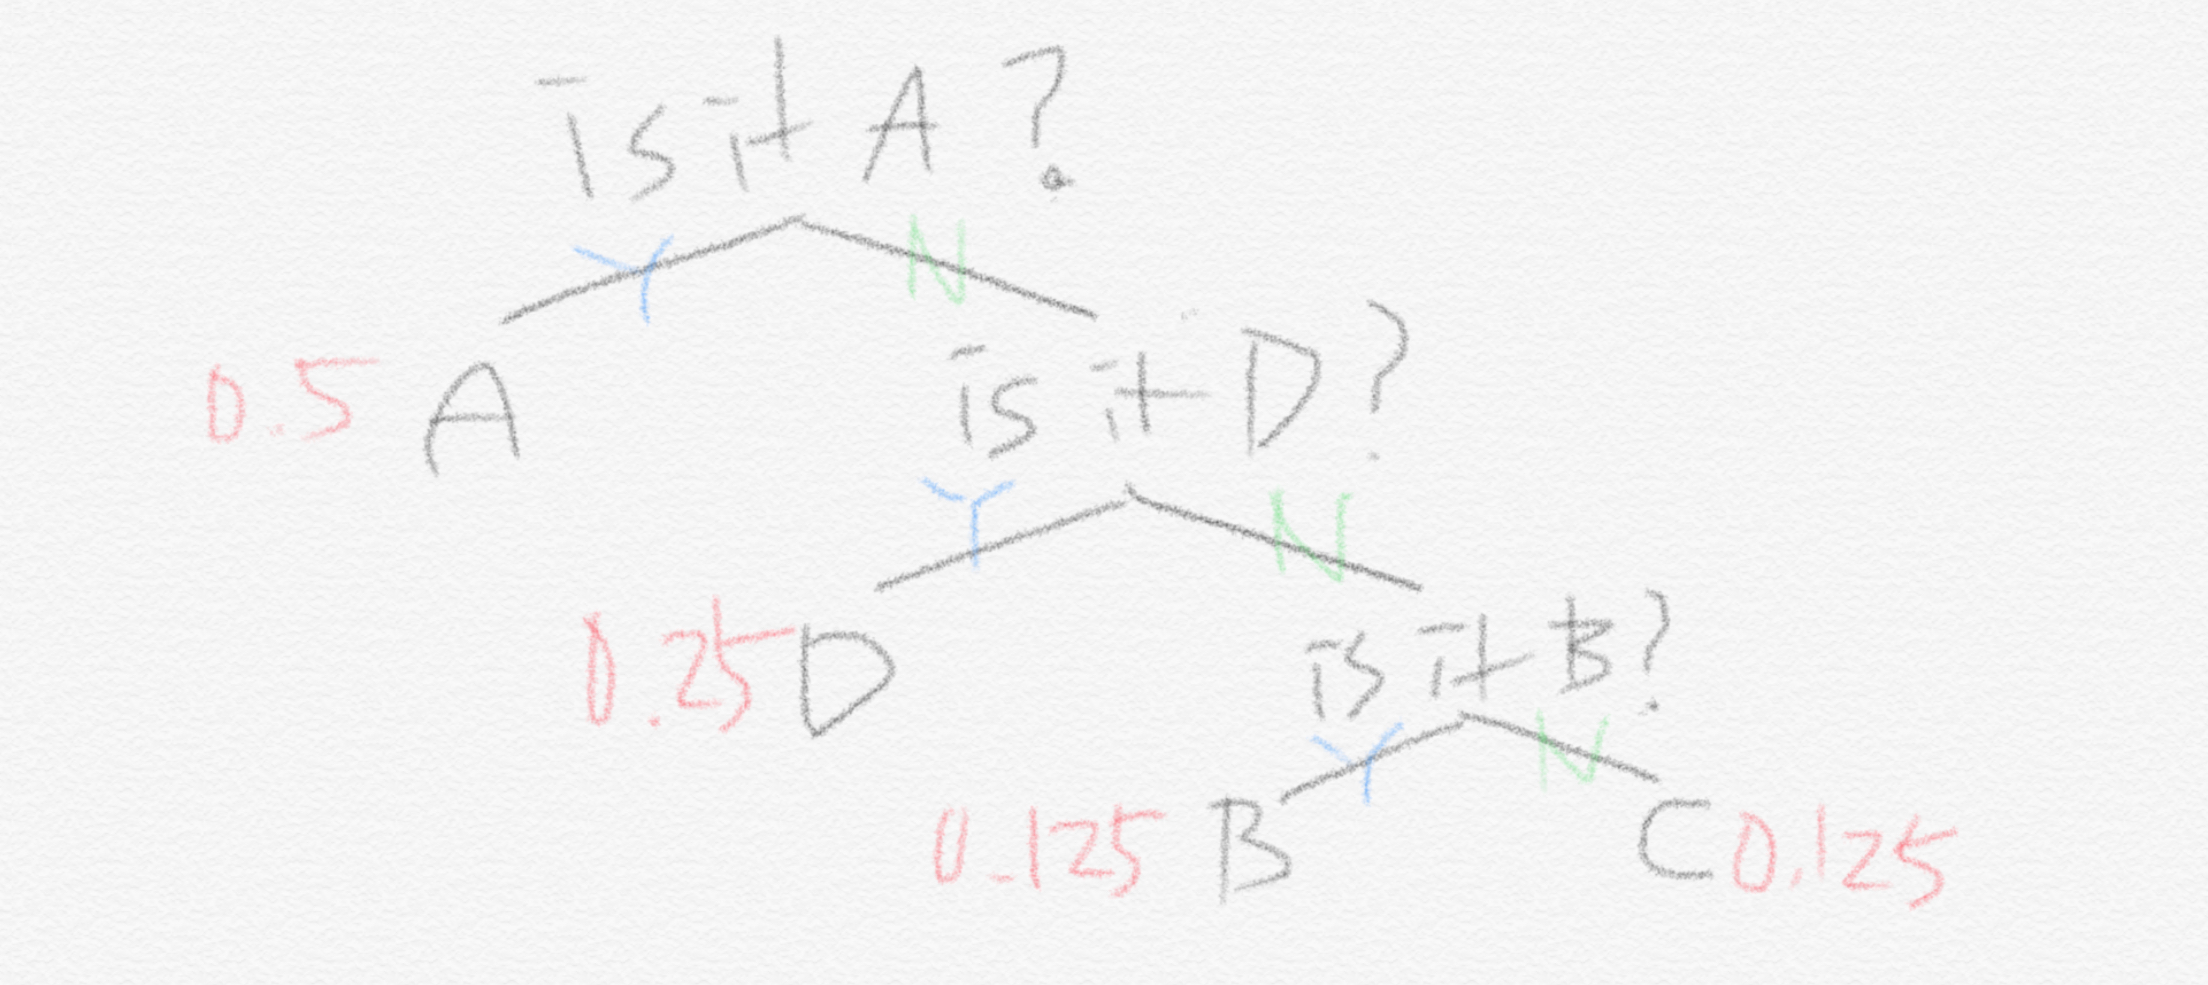 is it A?
Y N
0.5 A
is it D?
Y N
0.25 D
is it B?
Y N
0.125 B
C 0.125